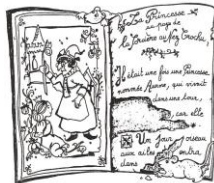 La Princesse
au pays de
la Sorcière au Nez Crochu,
Il était une fois une Princesse
nommée
qui vivait
dans une tour,
car elle
Un jour, oiseau
aux ailes entra,
dans